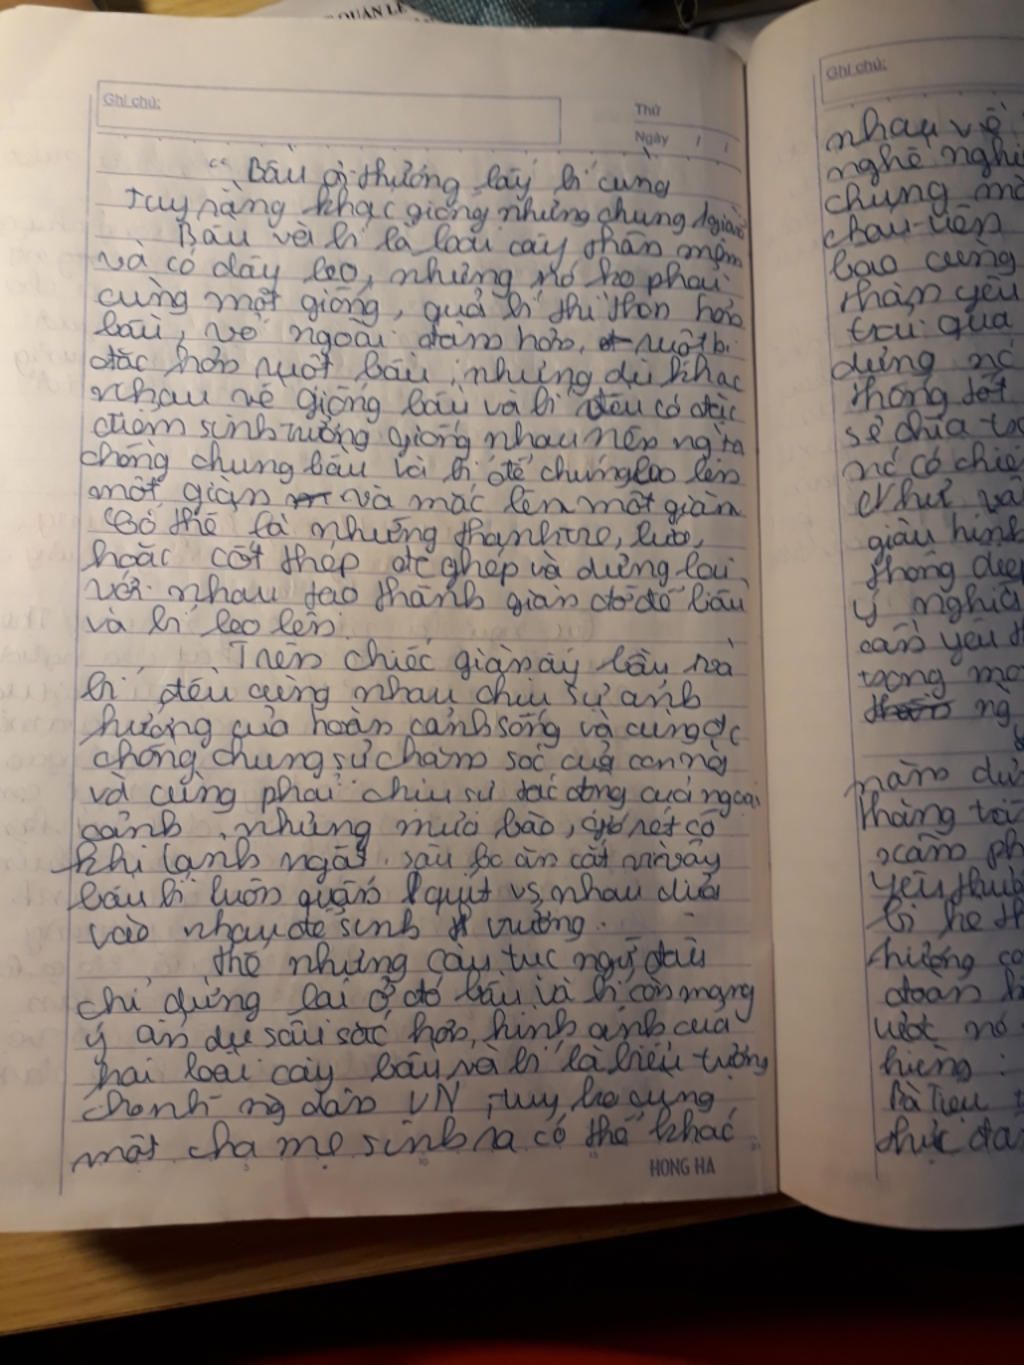 QUÂN L
Ghi chú:
Thứ
Ngày / /
"Bầu ơi thương lấy bí cùng
Tuy rằng khác giống nhưng chung 1 giàn"
Bầu và bí là loài cây thân mềm
và có dây leo, nhưng nó ko phải
cùng một giống, quả bí thì thon hơn
bầu, vỏ ngoài đậm hơn, ruột bí
đặc hơn ruột bầu, nhưng dù khác
nhau về giống bầu và bí đều có đặc
điểm sinh trưởng giống nhau nên ng ta
chồng chung bầu và bí để chúng leo lên
một giàn và mắc lên một giàn
Có thể là những thanh tre, lưới,
hoặc cốt thép để ghép và dựng lại
với nhau tạo thành giàn đỡ để bầu
và bí leo lên.
Trên chiếc giàn ấy bầu và
bí đều cùng nhau chịu sự ảnh
hưởng của hoàn cảnh sống và cùng đc
chồng chung sự chăm sóc của con ng
và cùng phải chịu sự tác động của ngoại
cảnh, những mưa bão, rét có
khi lạnh ngắt, sâu bọ ăn cắt vì vậy
bầu bí luôn quấn quýt vs nhau dựa
vào nhau để sinh trưởng.
Thế nhưng câu tục ngữ đâu
chỉ dừng lại ở đó bầu và bí còn mang
ý ẩn dụ sâu sắc hơn, hình ảnh của
hai loài cây bầu và bí là biểu tượng
cho ng dân VN, tuy ko cùng
một cha mẹ sinh ra có thể khác
HONG HA
Ghi chú:
nhau về
nghề nghi
chung mà
cháu tiên
bao cùng
thân yêu
trải qua
dựng nó
thống tốt
sẻ chia
nó có chi
Như vậ
giàu hình
thông điệ
ý nghĩa
cần yêu th
trong mọ
ng
năm
tháng
cần ph
yêu thươ
bí
thương co
đoàn k
vượt
hiểng:
Bà Tiệu
thực